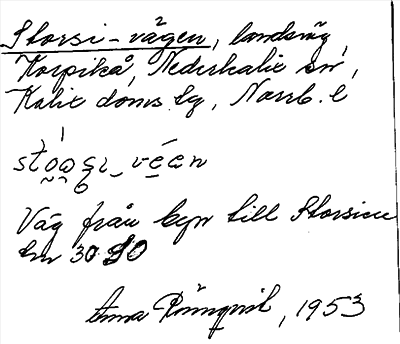 Storsi-vägen, landsväg,
Korpikå, Nederkalix sn,
Kalix doms. lg, Norrb. l
Väg från byn till Storsien
Em 30 90
Anna Rönnqvist, 1953